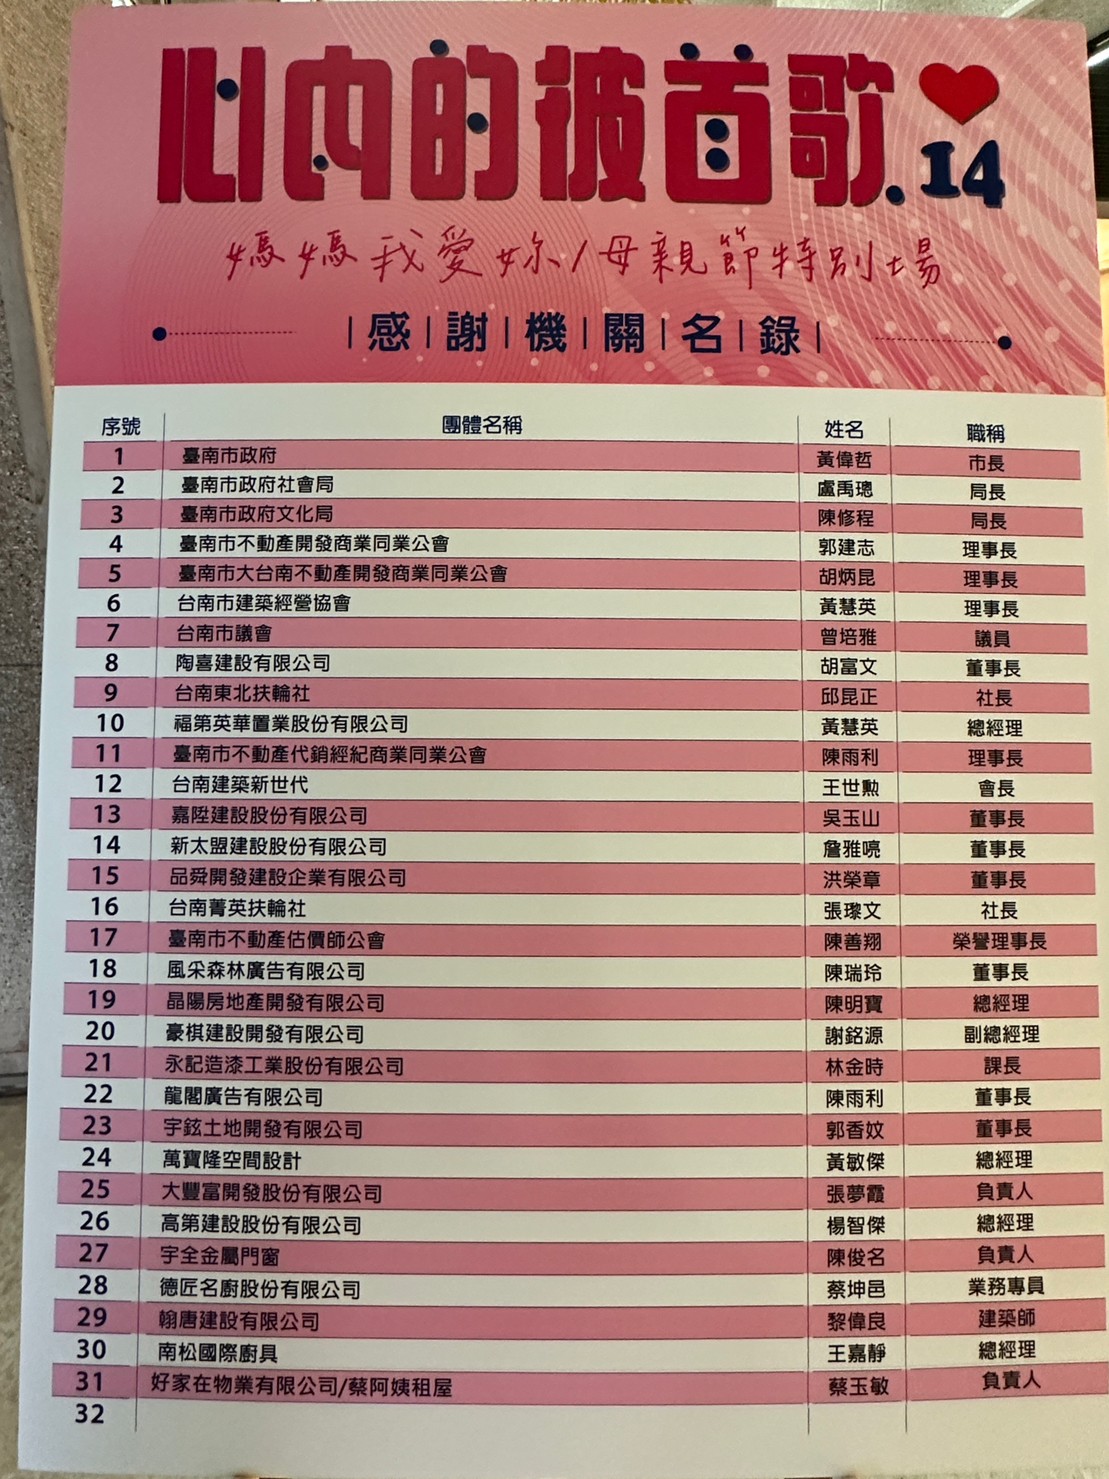 心內的彼首歌.14
媽媽我愛妳/母親節特別場
|感|謝|機|關|名|錄|
序號 團體名稱 姓名 職稱
1 臺南市政府 黃偉哲 市長
2 臺南市政府社會局 盧禹璁 局長
3 臺南市政府文化局 陳修程 局長
4 臺南市不動產開發商業同業公會 郭建志 理事長
5 臺南市大台南不動產開發商業同業公會 胡炳昆 理事長
6 台南市建築經營協會 黃慧英 理事長
7 台南市議會 曾培雅 議員
8 陶喜建設有限公司 胡富文 董事長
9 台南東北扶輪社 邱昆正 社長
10 福第英華置業股份有限公司 黃慧英 總經理
11 臺南市不動產代銷經紀商業同業公會 陳雨利 理事長
12 台南建築新世代 王世勲 會長
13 嘉陞建設股份有限公司 吳玉山 董事長
14 新太盟建設股份有限公司 詹雅喨 董事長
15 品舜開發建設企業有限公司 洪榮章 董事長
16 台南菁英扶輪社 張瓈文 社長
17 臺南市不動產估價師公會 陳善翔 榮譽理事長
18 風采森林廣告有限公司 陳瑞玲 董事長
19 晶陽房地產開發有限公司 陳明寶 總經理
20 豪棋建設開發有限公司 謝銘源 副總經理
21 永記造漆工業股份有限公司 林金時 課長
22 龍閣廣告有限公司 陳雨利 董事長
23 宇鉉土地開發有限公司 郭香妏 董事長
24 萬寶隆空間設計 黃敏傑 總經理
25 大豐富開發股份有限公司 張夢霞 負責人
26 高第建設股份有限公司 楊智傑 總經理
27 宇全金屬門窗 陳俊名 負責人
28 德匠名廚股份有限公司 蔡坤邑 業務專員
29 翰唐建設有限公司 黎偉良 建築師
30 南松國際廚具 王嘉靜 總經理
31 好家在物業有限公司/蔡阿姨租屋 蔡玉敏 負責人
32